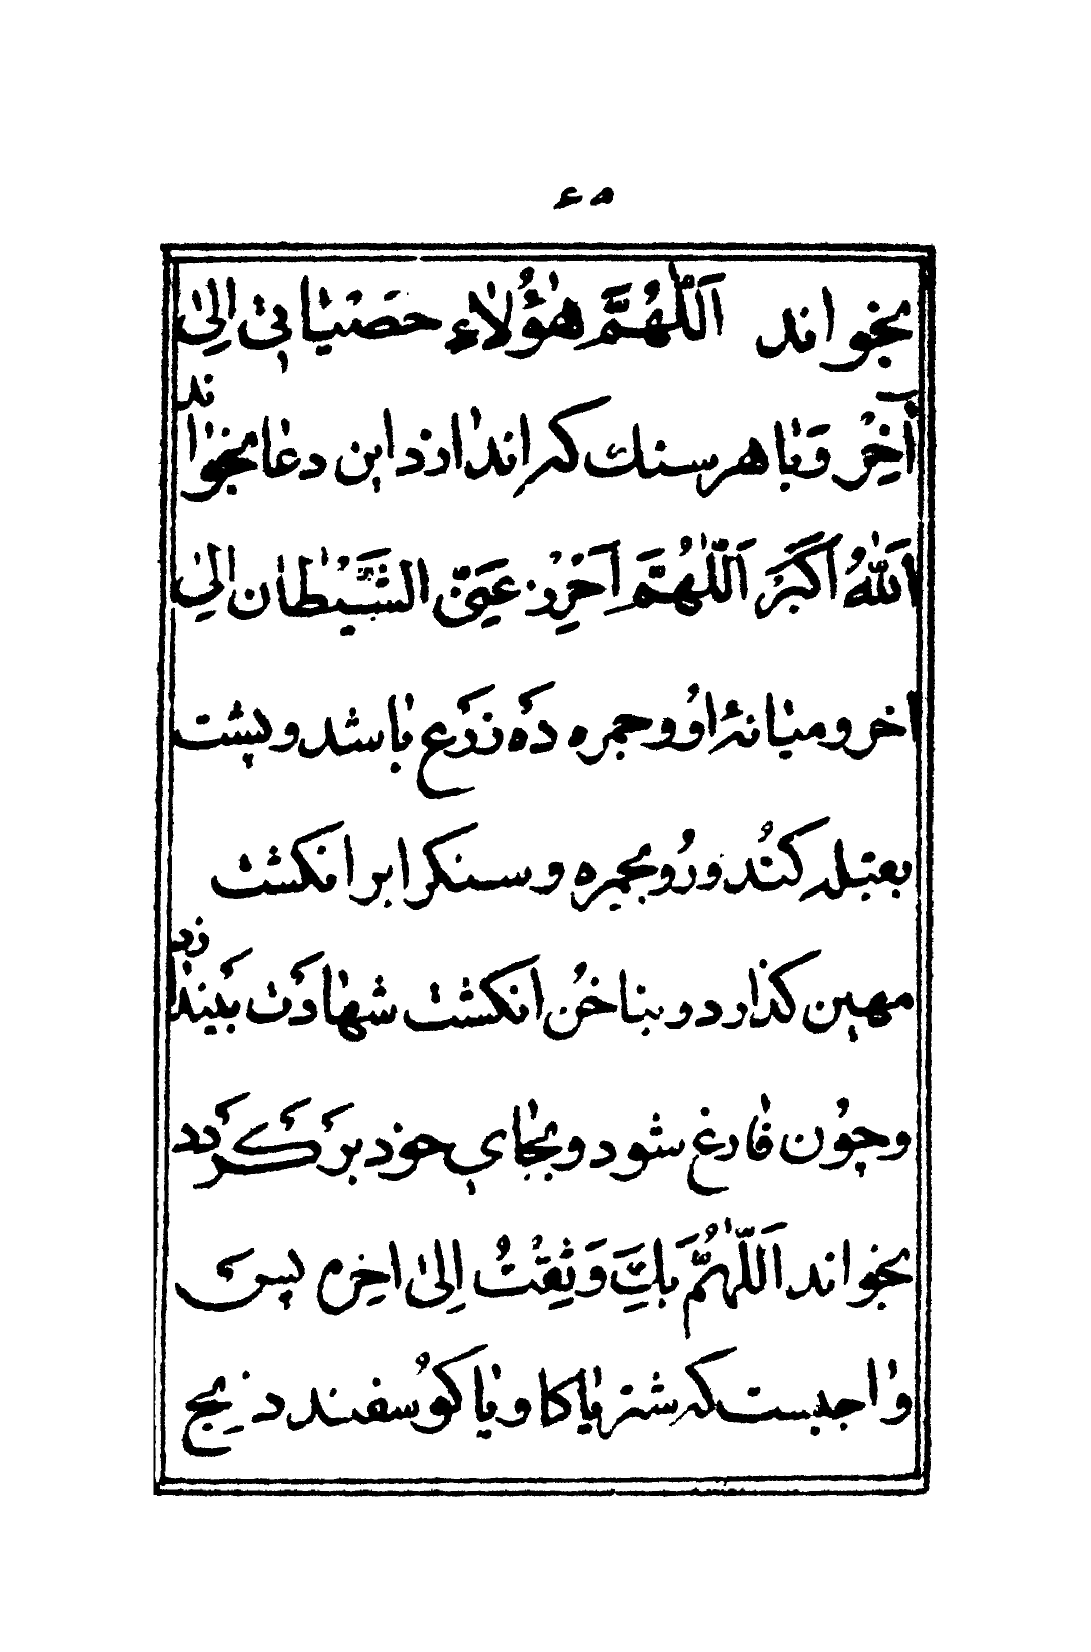 ۴۵
بخواند اَللّٰهُمَّ هٰؤُلاءِ حَصَیٰاتی اِلیٰ
آخِر وَ بٰا هر سنك كه اندازد این دعٰا بخوٰاند
اَللّٰهُ اَکْبَرْ اَللّٰهُمَّ اَخِرْ عَنّیِ الشَّیْطٰان اِلیٰ
اخر و میٰانهٔ او و جمره دَه زَرَع بٰا شد و پشت
بقبله كُنُد و رُو بجمره و سنکرا بر انکشت
مهین کذارد و بنا خُن انکشت شهٰادَت بَینداٰزد
و چُون فٰارغ شود و بجٰای خود بر کَردد
بخواند اَللّٰهُمَّ بِكَ وَثِقْتُ اِلیٰ اخِره پس
وٰاجبست که شتر یٰا کاو یٰا کوُسفند ذبح